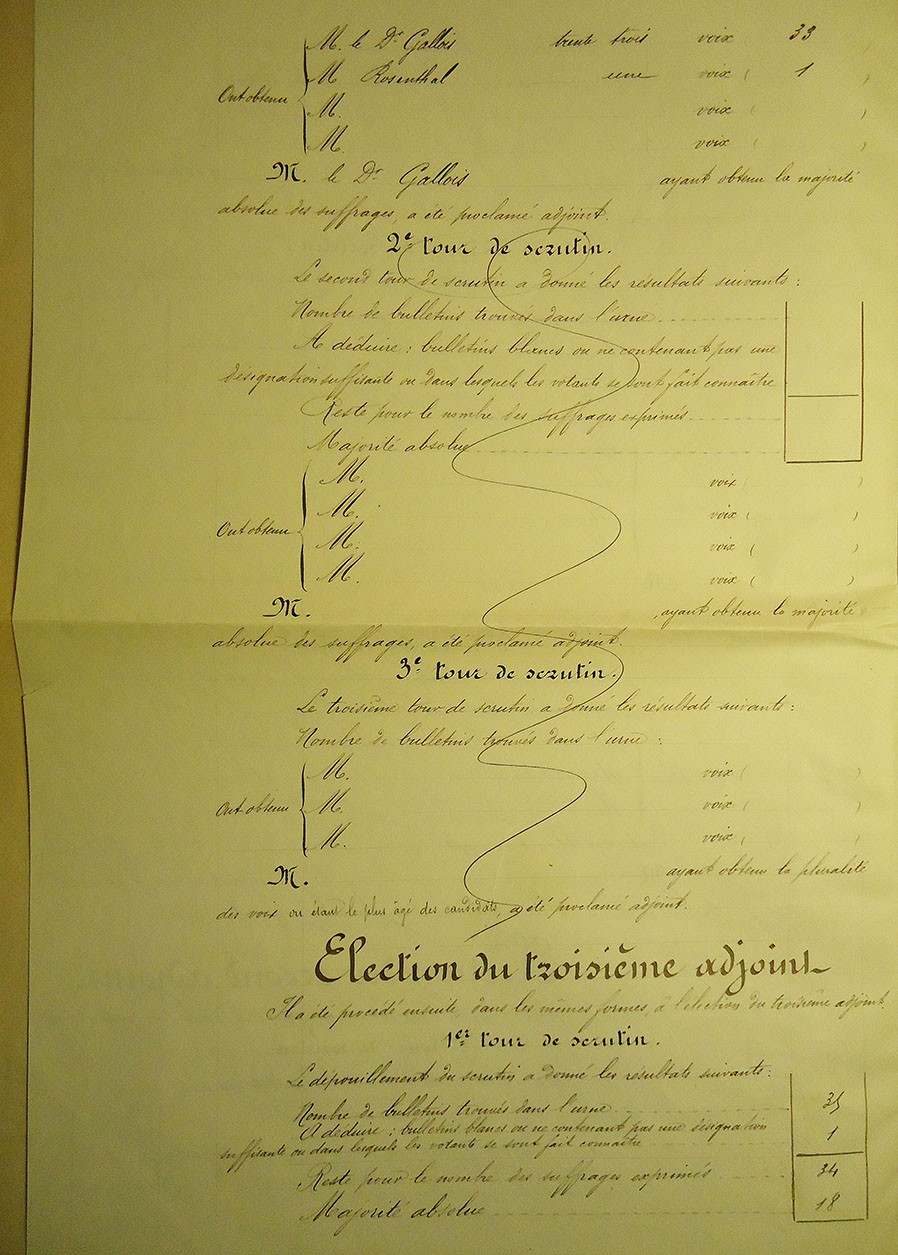 M. le Dr Gallois trente trois voix 33
M Rosenthal une voix ( 1 )
Ont obtenu
M. voix ( )
M. voix ( )
M. le Dr Gallois ayant obtenu la majorité
absolue des suffrages, a été proclamé adjoint.
2e tour de scrutin.
Le second tour de scrutin a donné les résultats suivants :
Nombre de bulletins trouvés dans l'urne
A déduire : bulletins blancs ou ne contenant pas une
désignation suffisante ou dans lesquels les votants se sont fait connaître
Reste pour le nombre des suffrages exprimés
Majorité absolue
M. voix ( )
M. voix ( )
Ont obtenu
M. voix ( )
M. voix ( )
M. ayant obtenu la majorité
absolue des suffrages, a été proclamé adjoint.
3e tour de scrutin.
Le troisième tour de scrutin a donné les résultats suivants :
Nombre de bulletins trouvés dans l'urne :
M. voix ( )
Ont obtenu
M. voix ( )
M. voix ( )
M. ayant obtenu la pluralité
des voix ou étant le plus âgé des candidats, a été proclamé adjoint.
Election du troisième adjoint
Il a été procédé ensuite, dans les mêmes formes, à l'élection du troisième adjoint.
1er tour de scrutin.
Le dépouillement du scrutin a donné les résultats suivants :
Nombre de bulletins trouvés dans l'urne 35
A déduire : bulletins blancs ou ne contenant pas une désignation
suffisante ou dans lesquels les votants se sont fait connaître 1
Reste pour le nombre des suffrages exprimés 34
Majorité absolue 18